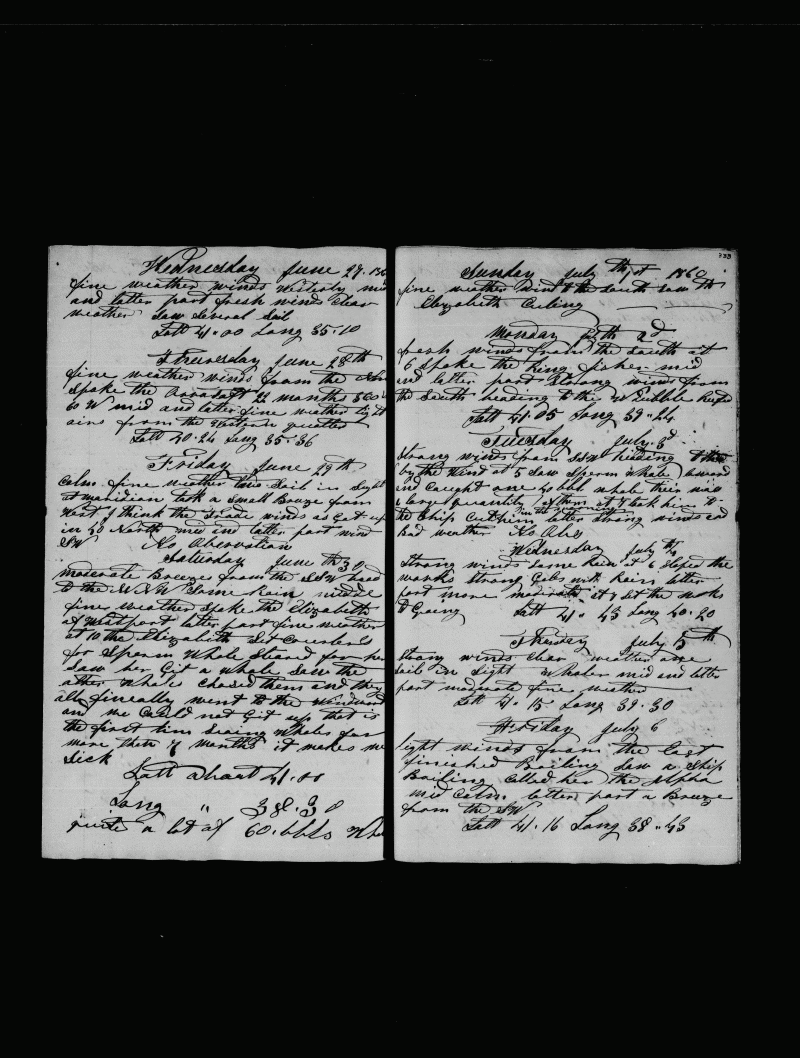 Wednesday June 27. 186
fine weather winds Westerly mid
and latter part fresh winds Clear
weather Saw Several Sail
Latt 41.00 Long 35.10
Thuresday June 28th
fine weather winds from the
Spoke the 22 months 500
60 W mid and latter fine weather light
airs from the Western quarter
Latt 40.24 Long 35.36
Friday June 29th
Calm fine weather this Sail in Sight
at meridian took a Small Breeze from
West I think the trade winds as Got up
in 40 North mid and latter part wind
SW No Observation
Saturday June th 30
moderate Breeze from the SSW head
to the NNW Some Rain middle
fine weather Spoke the Elizabeth
of Westport latter part fine weather
at 10 the Elizabeth Set Coulers
for Sperm Whale Steard for her
Saw her Git a whale Saw the
other Whale chased them and they
all fineally went to the windward
and we Could not Git up that is
the first time Seeing Whales for
more then 7 months it makes me
Sick
Latt about 41.00
Long " 38.30
quite a lot of 60. bbls Wha
333
Sunday July th 1st 1860
fine weather wind to the South Saw th
Elizabeth Cuting
Monday th 2d
fresh winds from the South at
6 Spoke the King fisher mid
and latter part Strong winds from
the South heading to the W Dibble Reefed
Latt 41.05 Long 39.24
Tuesday July. 3d
Strong winds from SSW heading
by the Wind at 5 Saw Sperm Whale
and Caught one 40 bbl whale their was
a large quantity of them at 7 took him to
the Ship Cut him in in the morning latter Strong winds and
Bad weather No Obs
Wednesday July th 4
Strong winds Some Rain at 6 Staped the
works Strong Gales with Rain latter
part more moderate at 8 Set the works
to Going Latt 41. 43 Long 40.20
Thursday July 5th
Strong winds Clear weather one
Sail in Sight Whaler mid and latter
part moderate fine weather
Latt 41. 15 Long 39.30
Friday July 6
light winds from the East
finished Boiling Saw a Ship
Boiling Called her the Alpha
mid Calm latter part a Breeze
from the SW
Latt 41.16 Long 38.43